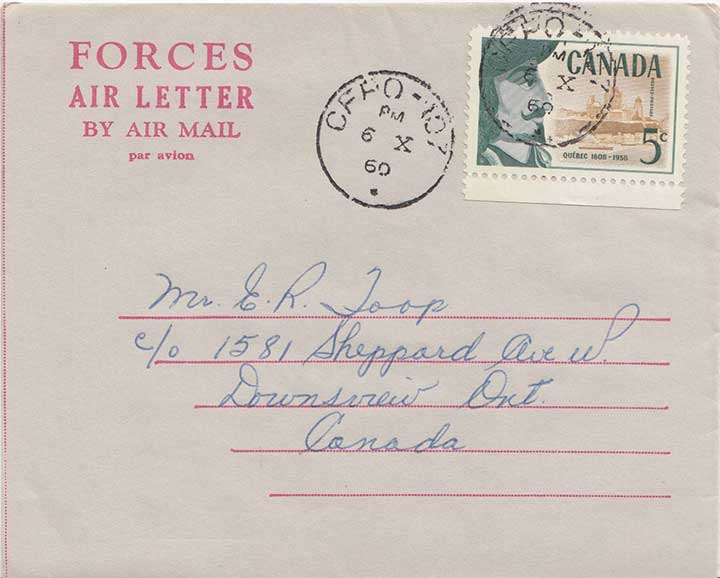 FORCES
AIR LETTER
BY AIR MAIL
par avion
CFPO-107
PM
6 X
60
CANADA
5c
QUÉBEC 1608-1958
Mr. E. R. Toop
c/o 1581 Sheppard Ave W.
Downsview Ont.
Canada